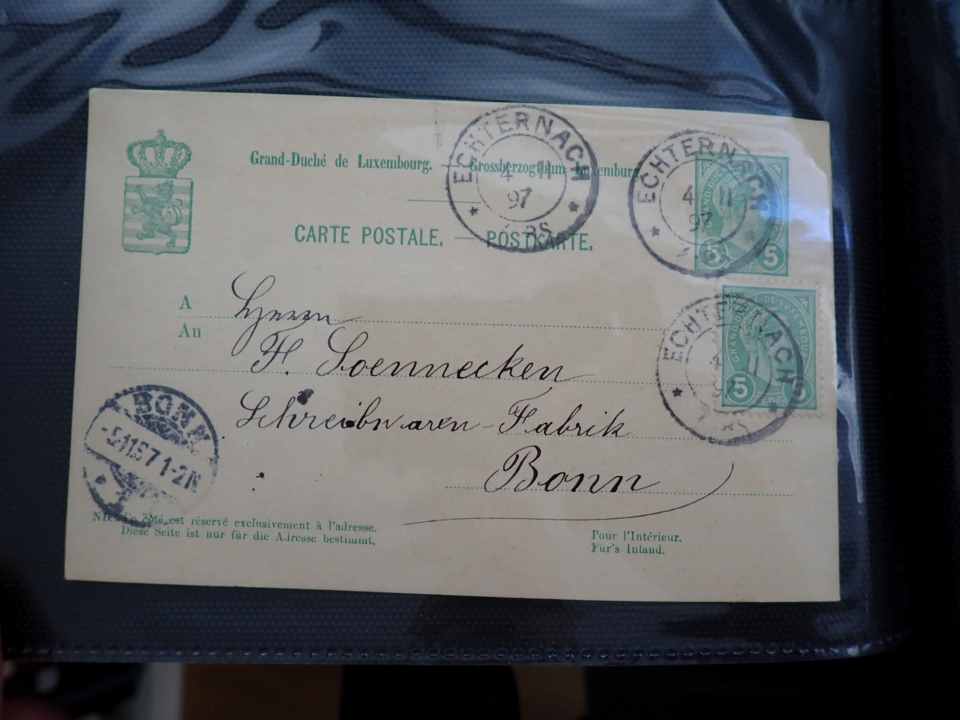 Grand-Duché de Luxembourg. — Grossherzogthum Luxemburg.
CARTE POSTALE. — POSTKARTE.
ECHTERNACH
4 11
97
ECHTERNACH
4 11
97
5 5
ECHTERNACH
4 11
97
5 5
A
An
Herrn
F. Soennecken
Schreibwaren-Fabrik
Bonn
BONN
1-2N
NB. Ce côté est réservé exclusivement à l'adresse.
Diese Seite ist nur für die Adresse bestimmt.
Pour l'Intérieur.
Für's Inland.